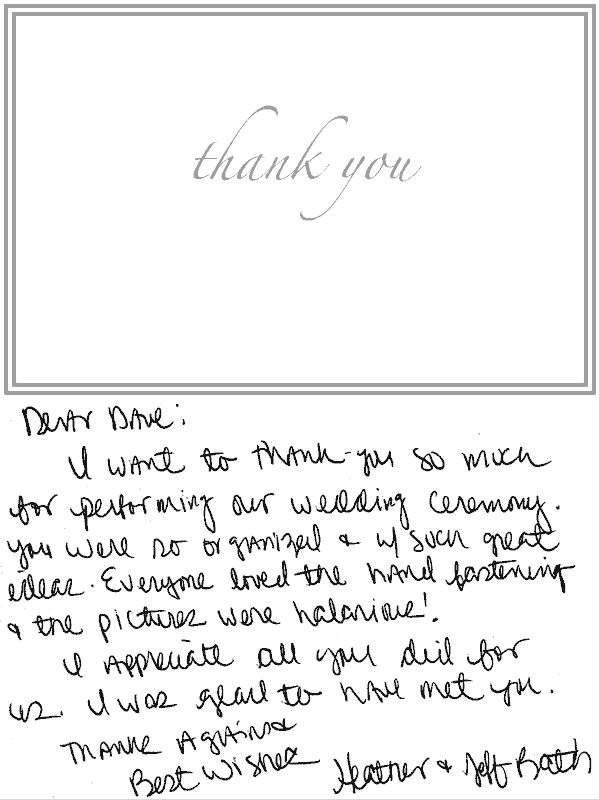 thank you
Dear Dave:
I want to thank-you so much
for performing our wedding ceremony.
you were so organized & w/ such great
ideas. Everyone loved the hand fastening
& the pictures were halarious!
I appreciate all you did for
us. I was glad to have met you.
Thanks Again &
Best Wishes Heather & Jeff Bath